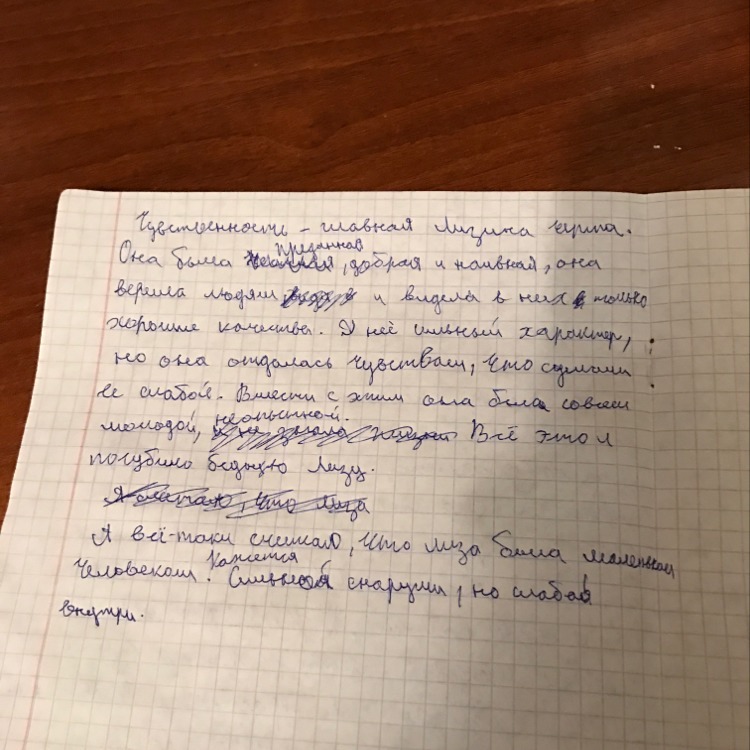 Чувственность – главная Лизина черта.
преданная
Она была , добрая и наивная, она
верила людям и видела в них только
хорошие качества. У неё сильный характер,
но она отдалась чувствам, что сделали
её слабой. Вместе с этим она была совсем
неопытной.
молодой, Всё это
погубило бедную Лизу.
Я считаю, что Лиза
Я всё-таки считаю, что Лиза была маленьким
Кажется
человеком. Сильной снаружи, но слабой
внутри.